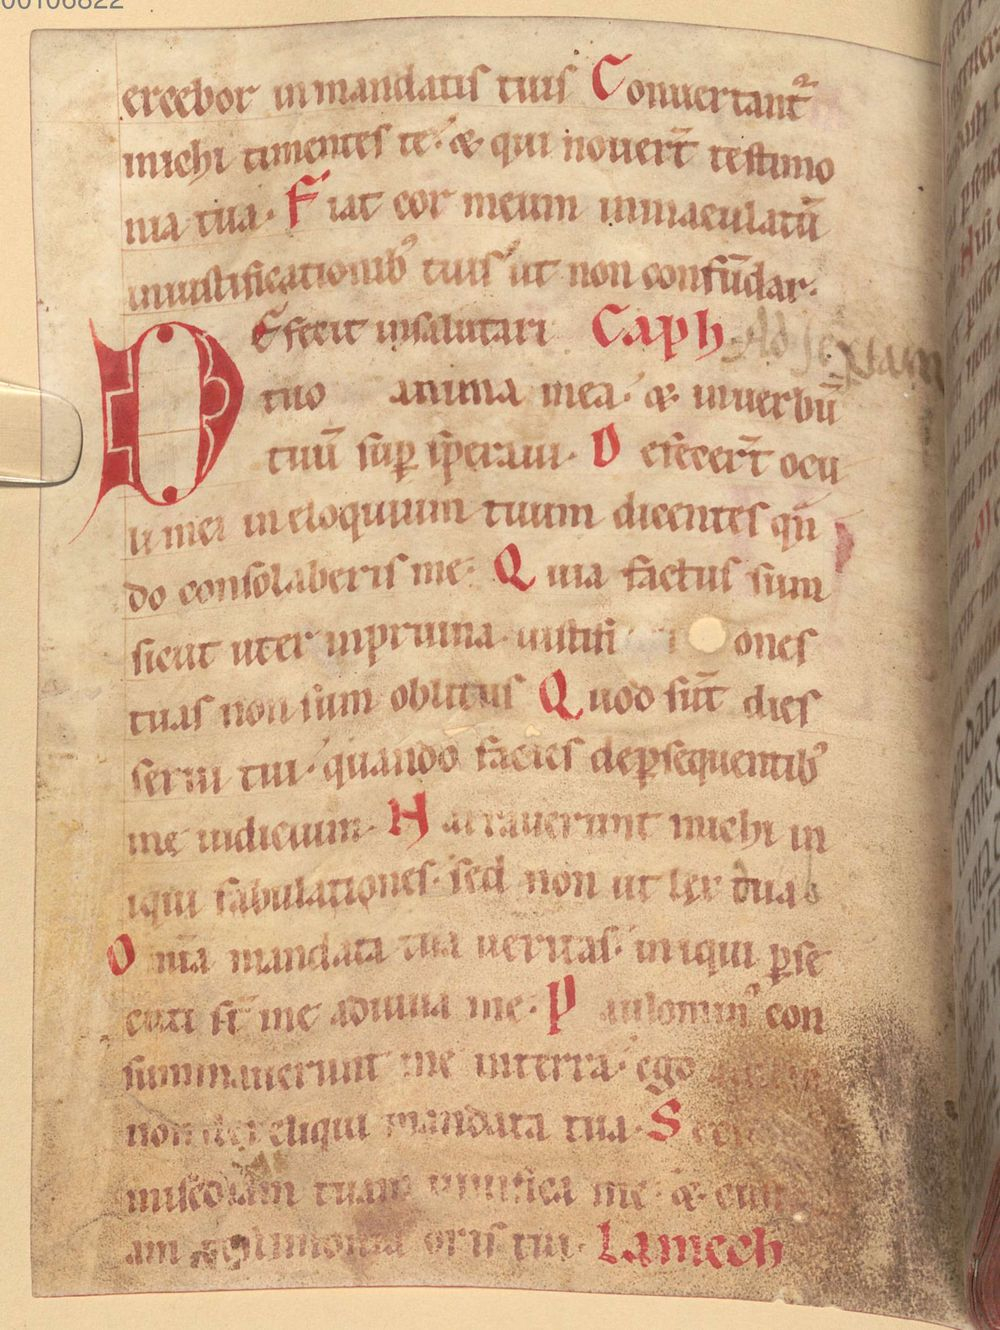 00106822
ercebor in mandatis tuis Conuertant᷑
michi timentes te· & qui nouert̄ testimo
nia tua· Fiat cor meum inmaculatū
iniustificationib᷒ tuis ut non confūdar·
DEfecit insalutari Caph Ad sextam
tuo anima mea· & inuerbū
tuū suꝑ speraui· Defecert̄ ocu
li mei in eloquium tuum dicentes qn̄
do consolaberis me· Quia factus sum
sicut uter inpruina iustifi ones
tuas non sum oblitus Quod sūt dies
serui tui· quando facies deꝑsequentib᷒
me iudicium· Narrauerunt michi in
iqui fabulationes· sed non ut lex tua
Om̄a mandata tua ueritas· iniqui ꝑse
cuti st̄ me adiuua me· Paulomin᷒ con
summauerunt me interra· ego
non dereliqui mandata tua· Sec
mīscdiam tuam uiuifica me· & cust
am testimonia oris tui· Lamech